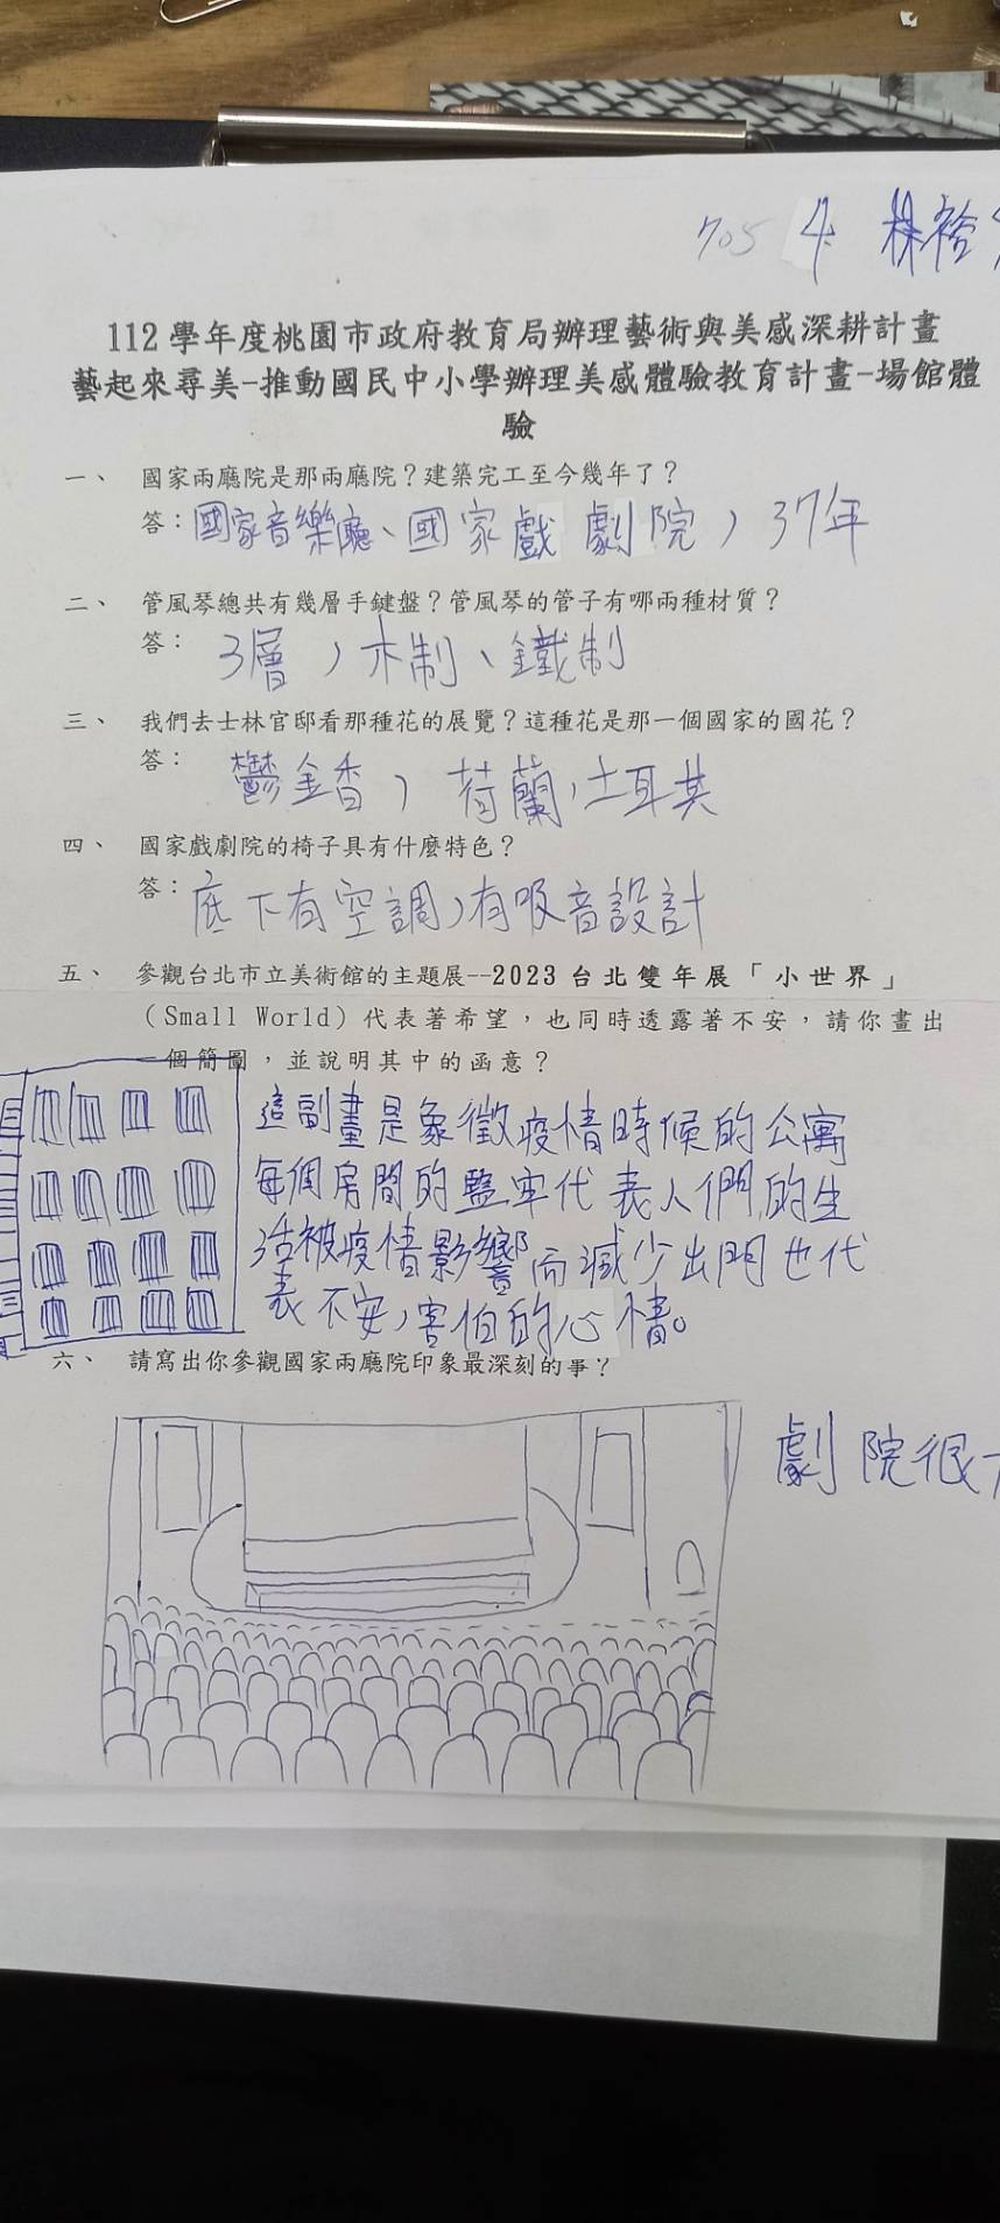 705 4 林裕
112學年度桃園市政府教育局辦理藝術與美感深耕計畫
藝起來尋美-推動國民中小學辦理美感體驗教育計畫-場館體
驗
一、 國家兩廳院是那兩廳院？建築完工至今幾年了？
答：國家音樂廳、國家戲劇院，37年
二、 管風琴總共有幾層手鍵盤？管風琴的管子有哪兩種材質？
答：3層，木制、鐵制
三、 我們去士林官邸看那種花的展覽？這種花是那一個國家的國花？
答：鬱金香，荷蘭，土耳其
四、 國家戲劇院的椅子具有什麼特色？
答：底下有空調，有吸音設計
五、 參觀台北市立美術館的主題展--2023台北雙年展「小世界」
（Small World）代表著希望，也同時透露著不安，請你畫出
一個簡圖，並說明其中的函意？
這副畫是象徵疫情時候的公寓
每個房間的監牢代表人們的生
活被疫情影響而減少出門也代
表不安，害怕的心情。
六、 請寫出你參觀國家兩廳院印象最深刻的事？
劇院很